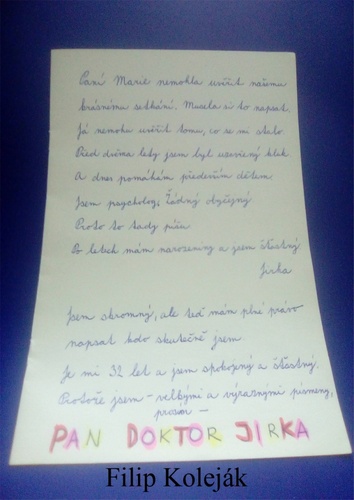 Paní Marie nemohla uvěřit našemu
krásnému setkání. Musela si to napsat.
Já nemohu uvěřit tomu, co se mi stalo.
Před dvěma lety jsem byl uzavřený kluk
A dnes pomáhám především dětem.
Jsem psycholog, žádný obyčejný
Proto to tady píšu
Po letech mám narozeniny a jsem šťastný
Jirka
Jsem skromný, ale teď mám plné právo
napsat kdo skutečně jsem
Je mi 32 let a jsem spokojený a šťastný.
Protože jsem - velkými a výraznými písmeny,
prosím -
PAN DOKTOR JIRKA
Filip Koleják